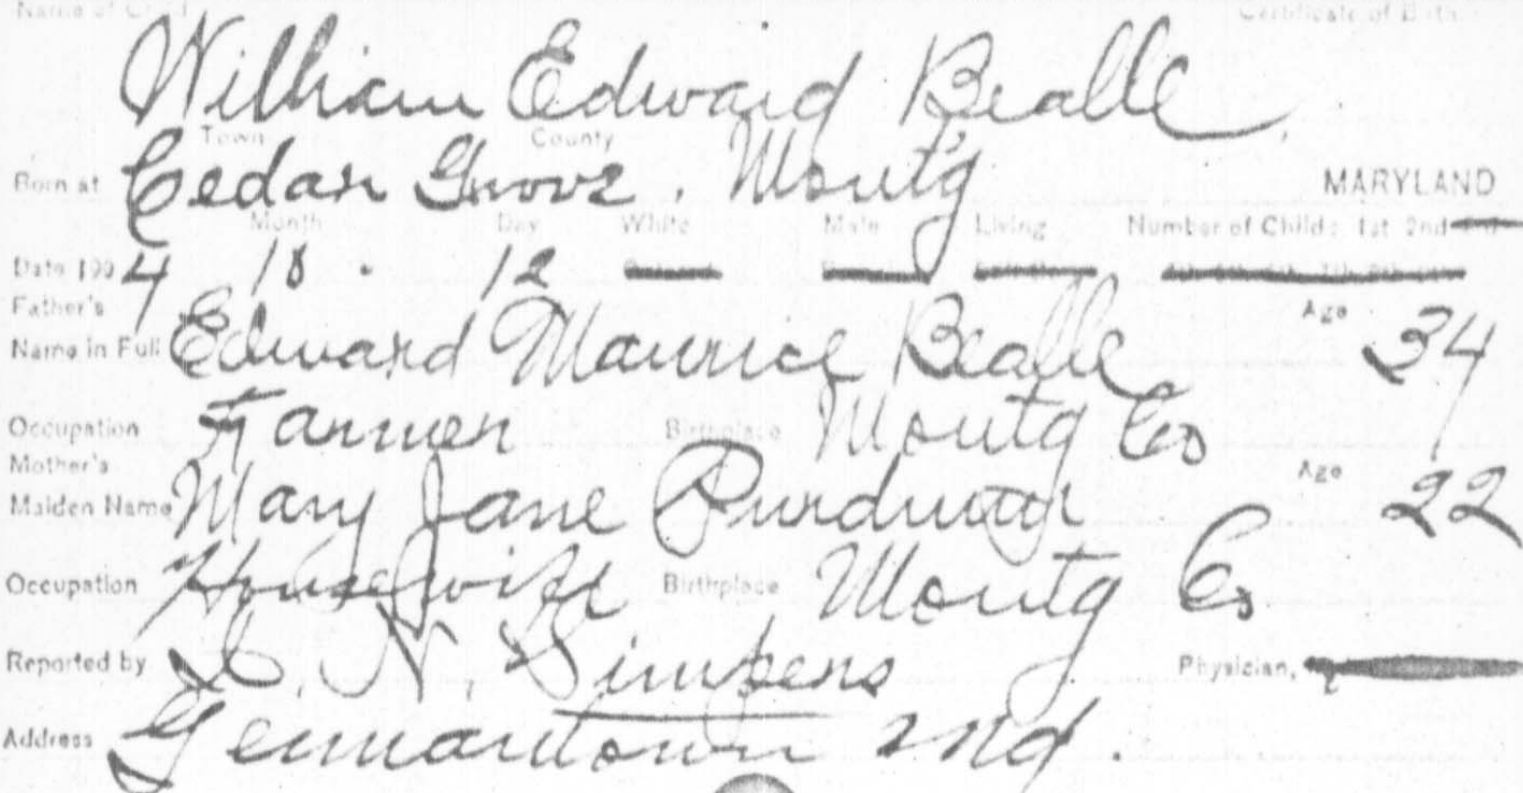 Name of Child Certificate of Birth
William Edward Bealle
Town County
Born at Cedar Grove, Montg MARYLAND
Month Day White Male Living Number of Child: 1st 2nd
Date 190 4 10 12
Father's Age
Name in Full Edward Maurice Bealle 34
Occupation Farmer Birthplace Montg Co
Mother's Age
Maiden Name Mary Jane 22
Occupation Housewife Birthplace Montg Co
Reported by N. Simpens Physician,
Address Germantown Md.